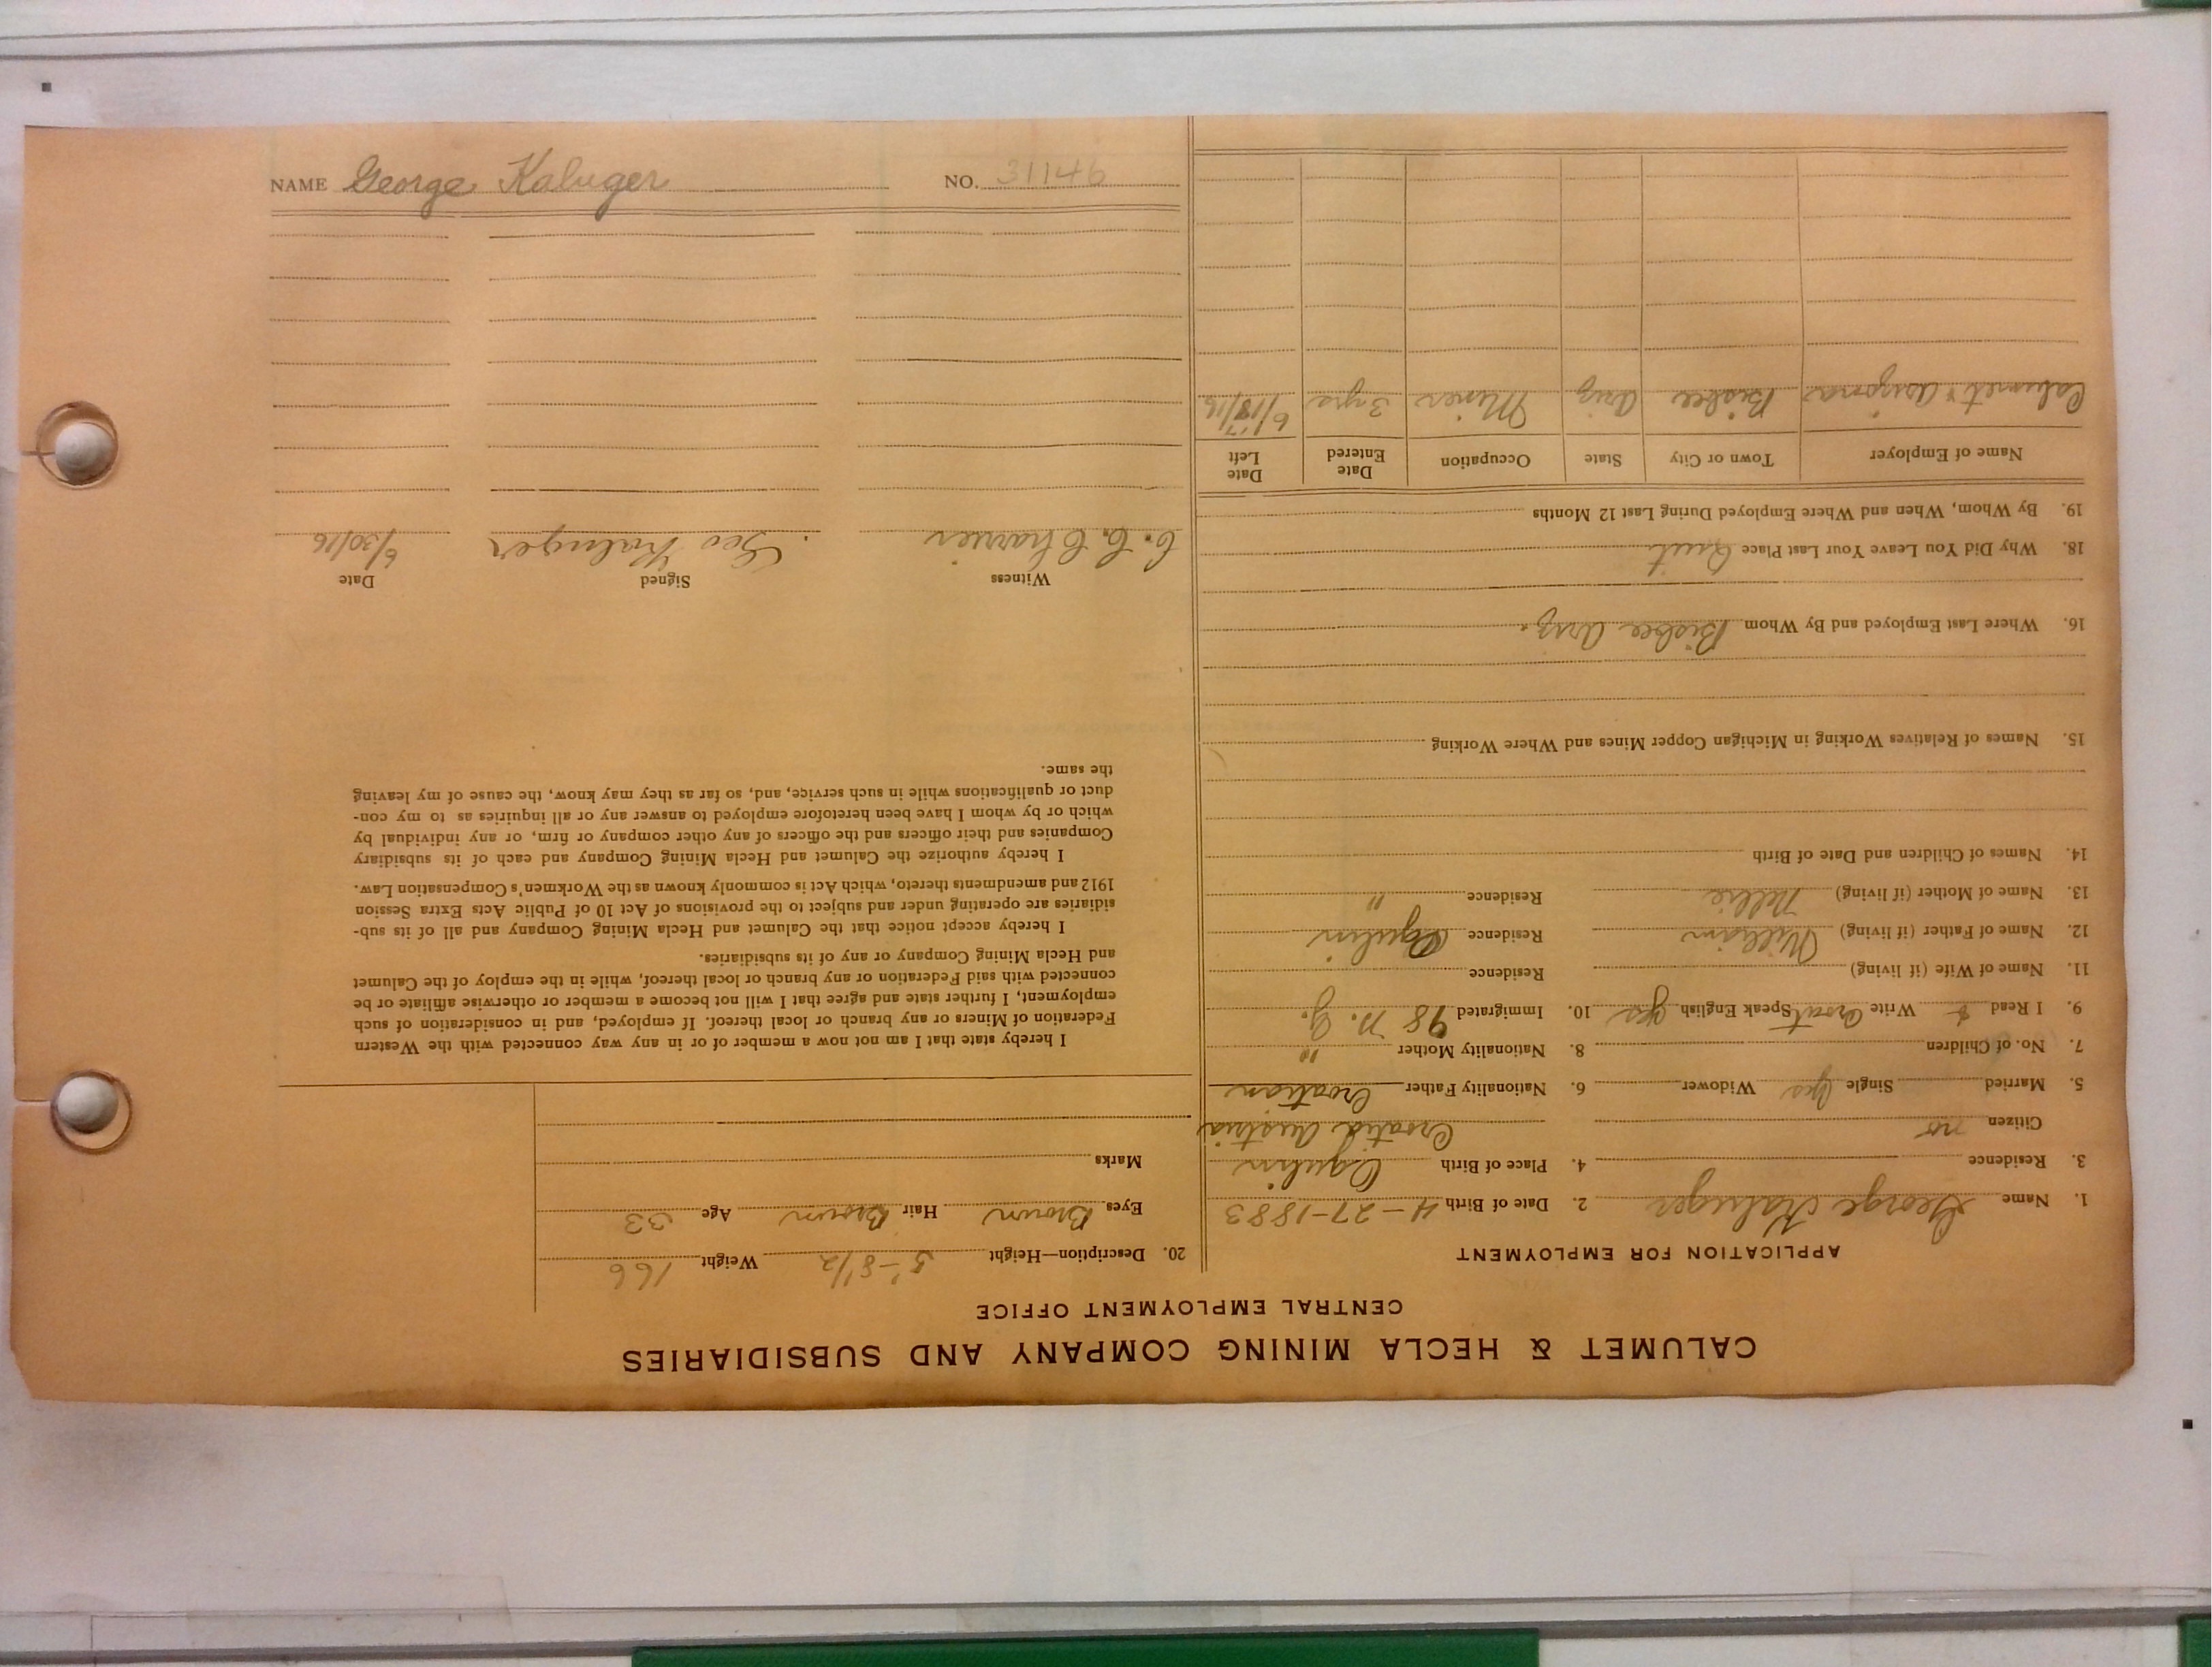 CALUMET & HECLA MINING COMPANY AND SUBSIDIARIES
CENTRAL EMPLOYMENT OFFICE
APPLICATION FOR EMPLOYMENT
1. Name George Kaluger 2. Date of Birth 4-27-1883
3. Residence 4. Place of Birth Ogulin
Citizen no Croatia Austria
5. Married Single Yes Widower 6. Nationality Father Croatian
7. No. of Children 8. Nationality Mother "
9. I Read & Write Croat Speak English yes 10. Immigrated 98 N.Y.
11. Name of Wife (if living) Residence
12. Name of Father (if living) William Residence Ogulin
13. Name of Mother (if living) Nellie Residence "
14. Names of Children and Date of Birth
15. Names of Relatives Working in Michigan Copper Mines and Where Working
16. Where Last Employed and By Whom Bisbee Ariz.
18. Why Did You Leave Your Last Place Quit
19. By Whom, When and Where Employed During Last 12 Months
Name of Employer Town or City State Occupation Date Entered Date Left
Calumet & Arizona Bisbee Ariz Miner 3 yrs 6/18/16
20. Description—Height 5'-8 1/2 Weight 166
Eyes Brown Hair Brown Age 33
Marks
I hereby state that I am not now a member of or in any way connected with the Western
Federation of Miners or any branch or local thereof. If employed, and in consideration of such
employment, I further state and agree that I will not become a member or otherwise affiliate or be
connected with said Federation or any branch or local thereof, while in the employ of the Calumet
and Hecla Mining Company or any of its subsidiaries.
I hereby accept notice that the Calumet and Hecla Mining Company and all of its sub-
sidiaries are operating under and subject to the provisions of Act 10 of Public Acts Extra Session
1912 and amendments thereto, which Act is commonly known as the Workmen's Compensation Law.
I hereby authorize the Calumet and Hecla Mining Company and each of its subsidiary
Companies and their officers and the officers of any other company or firm, or any individual by
which or by whom I have been heretofore employed to answer any or all inquiries as to my con-
duct or qualifications while in such service, and, so far as they may know, the cause of my leaving
the same.
Witness Signed Date
C. C. Charrier Geo Kaluger 6/30/16
NAME George Kaluger NO. 31146